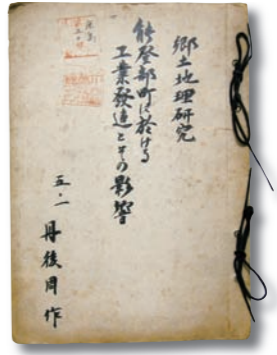 郷土地理研究
能登部町に於ける
工業發達とその影響
五・一
丹後周作